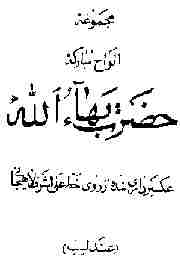 مجموعه
الواح مبارکه
حضرت بهاءالله
عکسبرداری شده از روی خط علی اشرف لاهیجانی
(عندلیب)